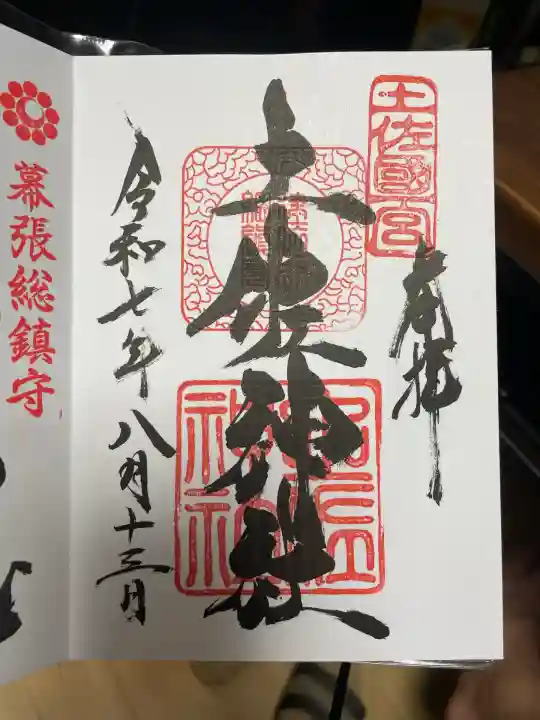 土佐國宮
奉拝
土佐神社
令和七年八月十三日
幕張総鎮守